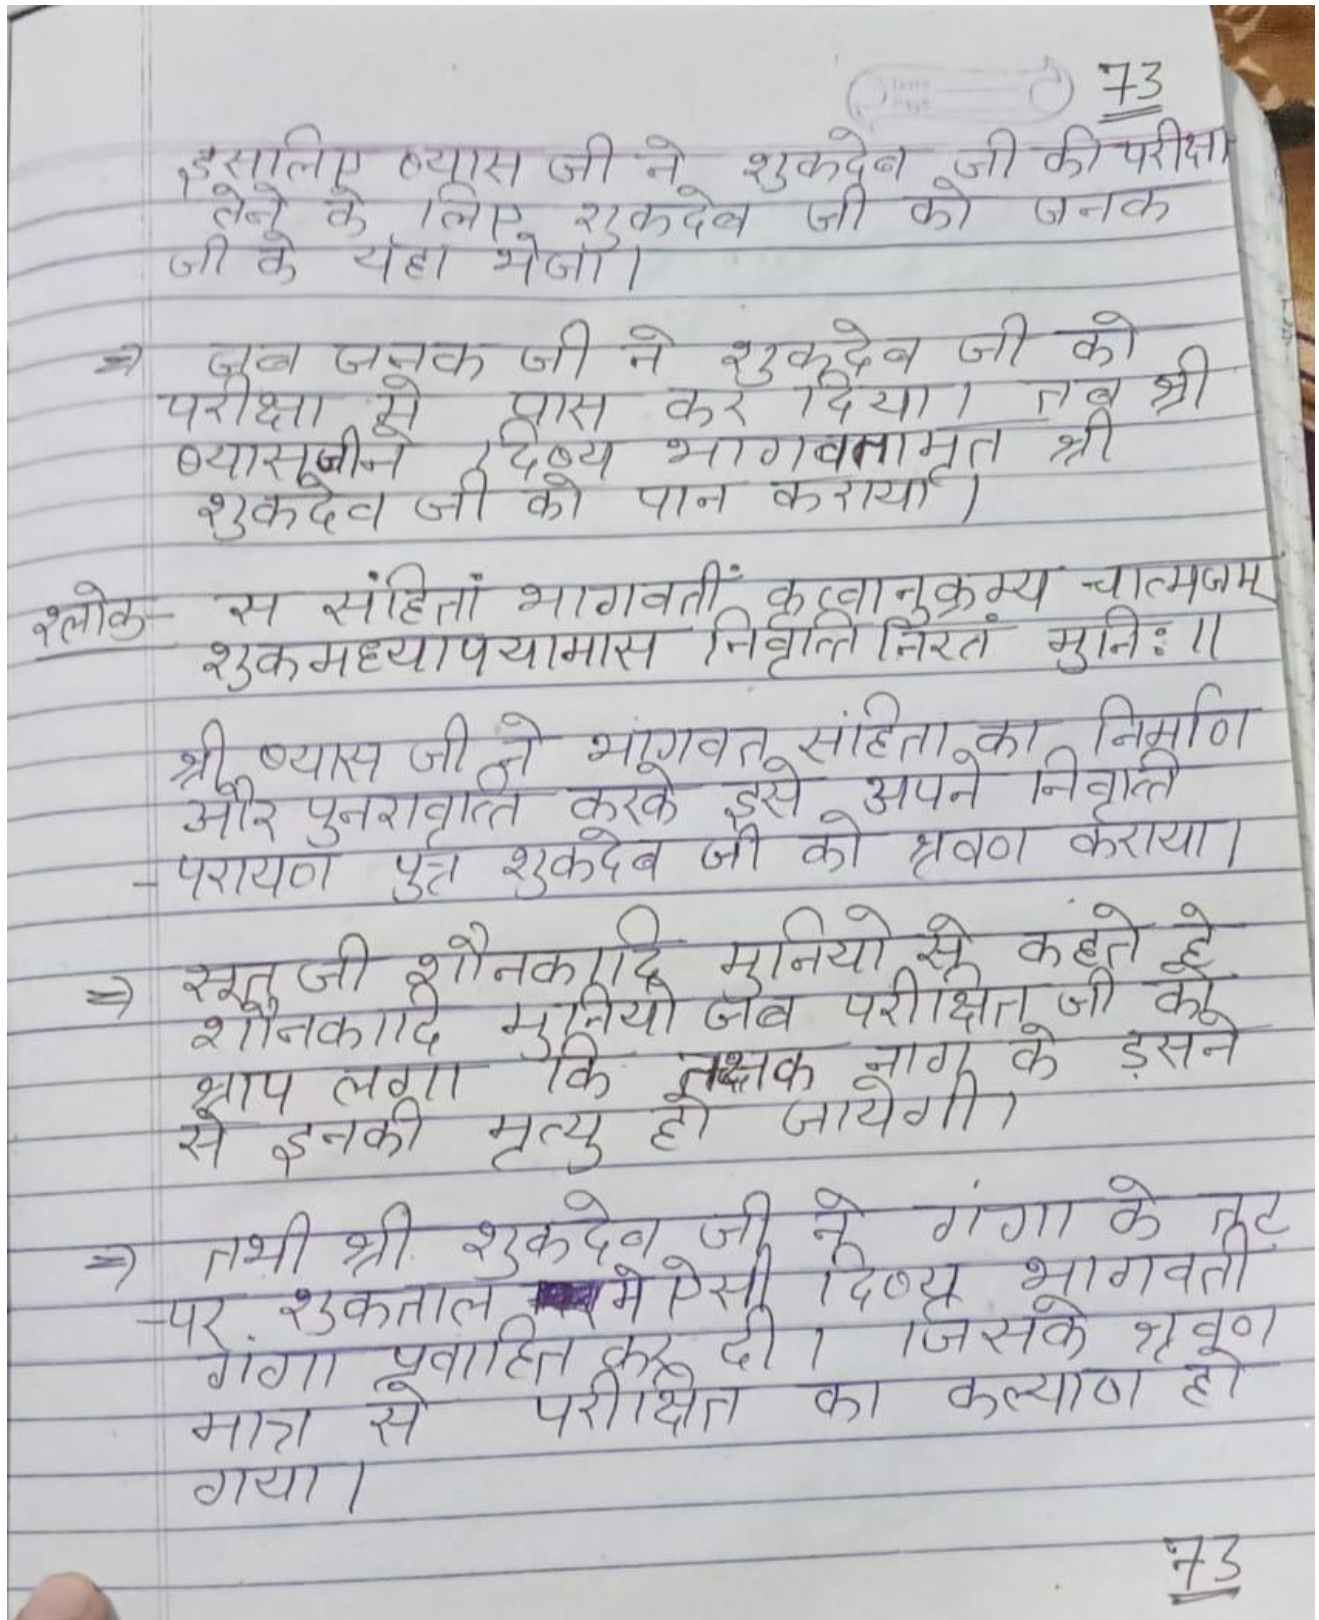 73
इसलिए व्यास जी ने शुकदेव जी की परीक्षा
लेने के लिए शुकदेव जी को जनक
जी के यंहा भेजा।
⇒ जब जनक जी ने शुकदेव जी को
परीक्षा से पास कर दिया। तब श्री
व्यासजीने दिव्य भागवतामृत श्री
शुकदेव जी को पान कराया।
श्लोक- स संहितां भागवतीं कृत्वानुक्रम्य चात्मजम्
शुकमध्यापयामास निवृत्ति निरतं मुनिः॥
श्री व्यास जी ने भागवत संहिता का निर्माण
और पुनरावृत्ति करके इसे अपने निवृत्ति
-परायण पुत्र शुकदेव जी को श्रवण कराया।
⇒ सूत जी शौनकादि मुनियो से कहते हे
शौनकादि मुनियो जब परीक्षित जी को
श्राप लगा कि तक्षक नाग के ड़सने
से इनकी मृत्यु हो जायेगी।
⇒ तभी श्री शुकदेव जी ने गंगा के तट
-पर शुकताल मे ऐसी दिव्य भागवती
गंगा प्रवाहित कर दी। जिसके श्रवण
मात्र से परीक्षित का कल्याण हो
गया।
73